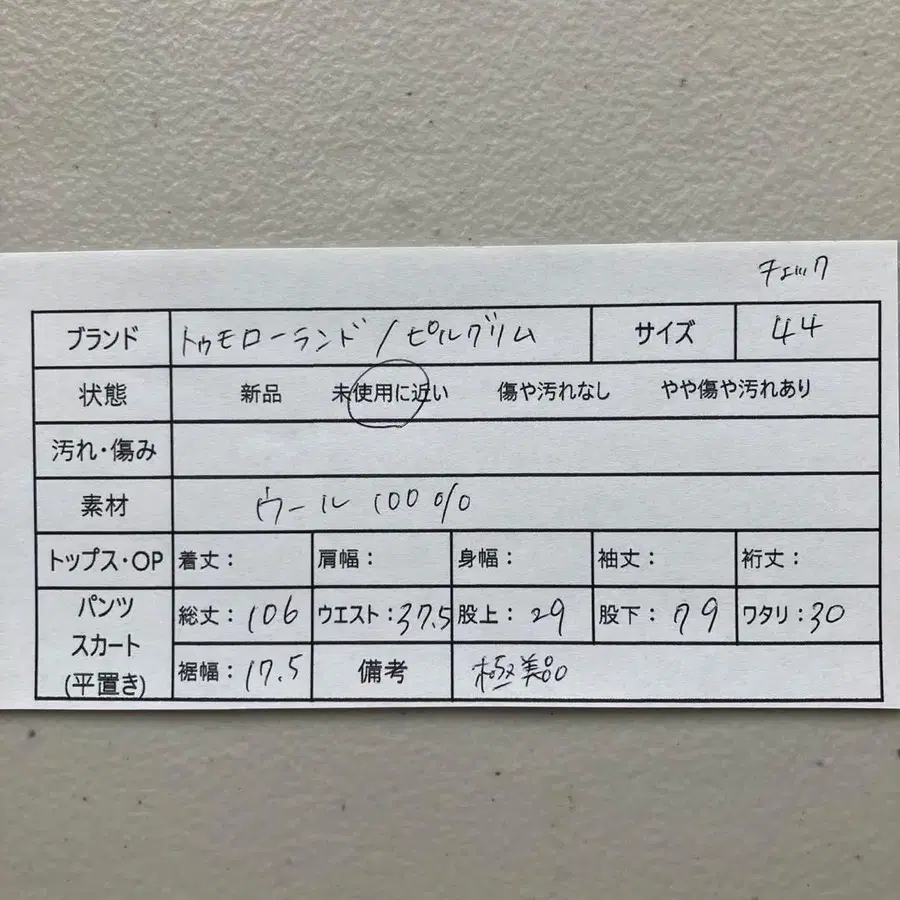 チェック
ブランド トゥモローランド/ピルグリム サイズ 44
状態 新品 未使用に近い 傷や汚れなし やや傷や汚れあり
汚れ・傷み
素材 ウール 100%
トップス・OP 着丈： 肩幅： 身幅： 袖丈： 裄丈：
パンツ
スカート
(平置き)
総丈：106 ウエスト：37.5 股上：29 股下：79 ワタリ：30
裾幅：17.5 備考 極美品